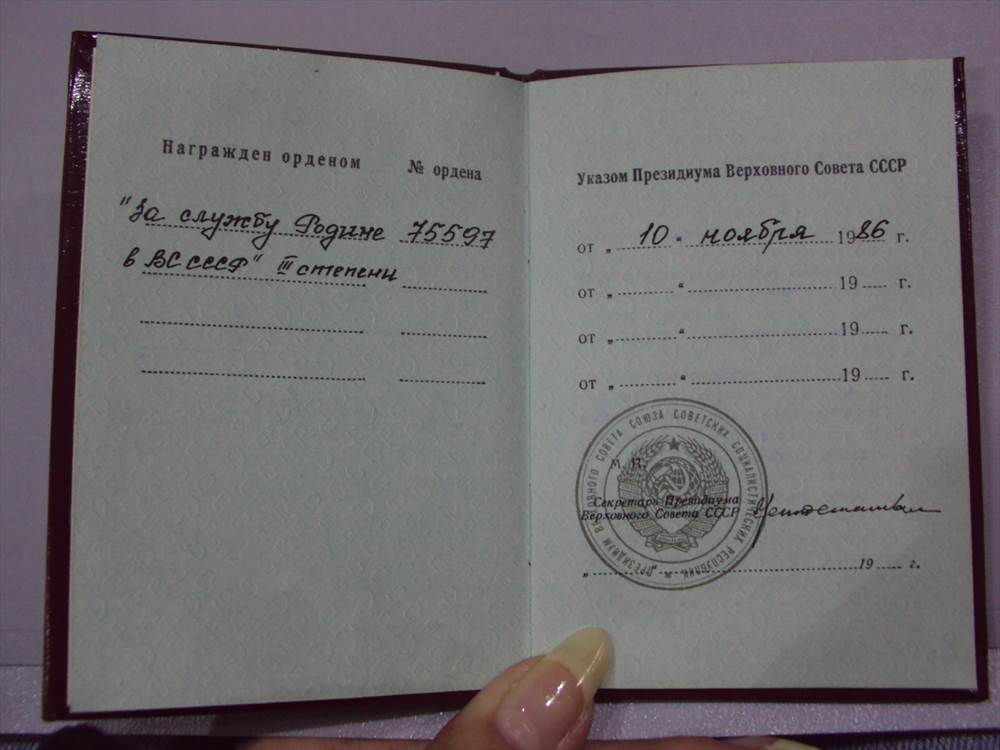 Награжден орденом № ордена
"За службу Родине 75597
в ВС СССР" III степени
Указом Президиума Верховного Совета СССР
от „ 10 “ ноября 1986 г.
от „ “ 19 г.
от „ “ 19 г.
от „ “ 19 г.
ПРЕЗИДИУМ ВЕРХОВНОГО СОВЕТА СОЮЗА СОВЕТСКИХ СОЦИАЛИСТИЧЕСКИХ РЕСПУБЛИК
М. П.
Секретарь Президиума
Верховного Совета СССР
„ “ 19 г.